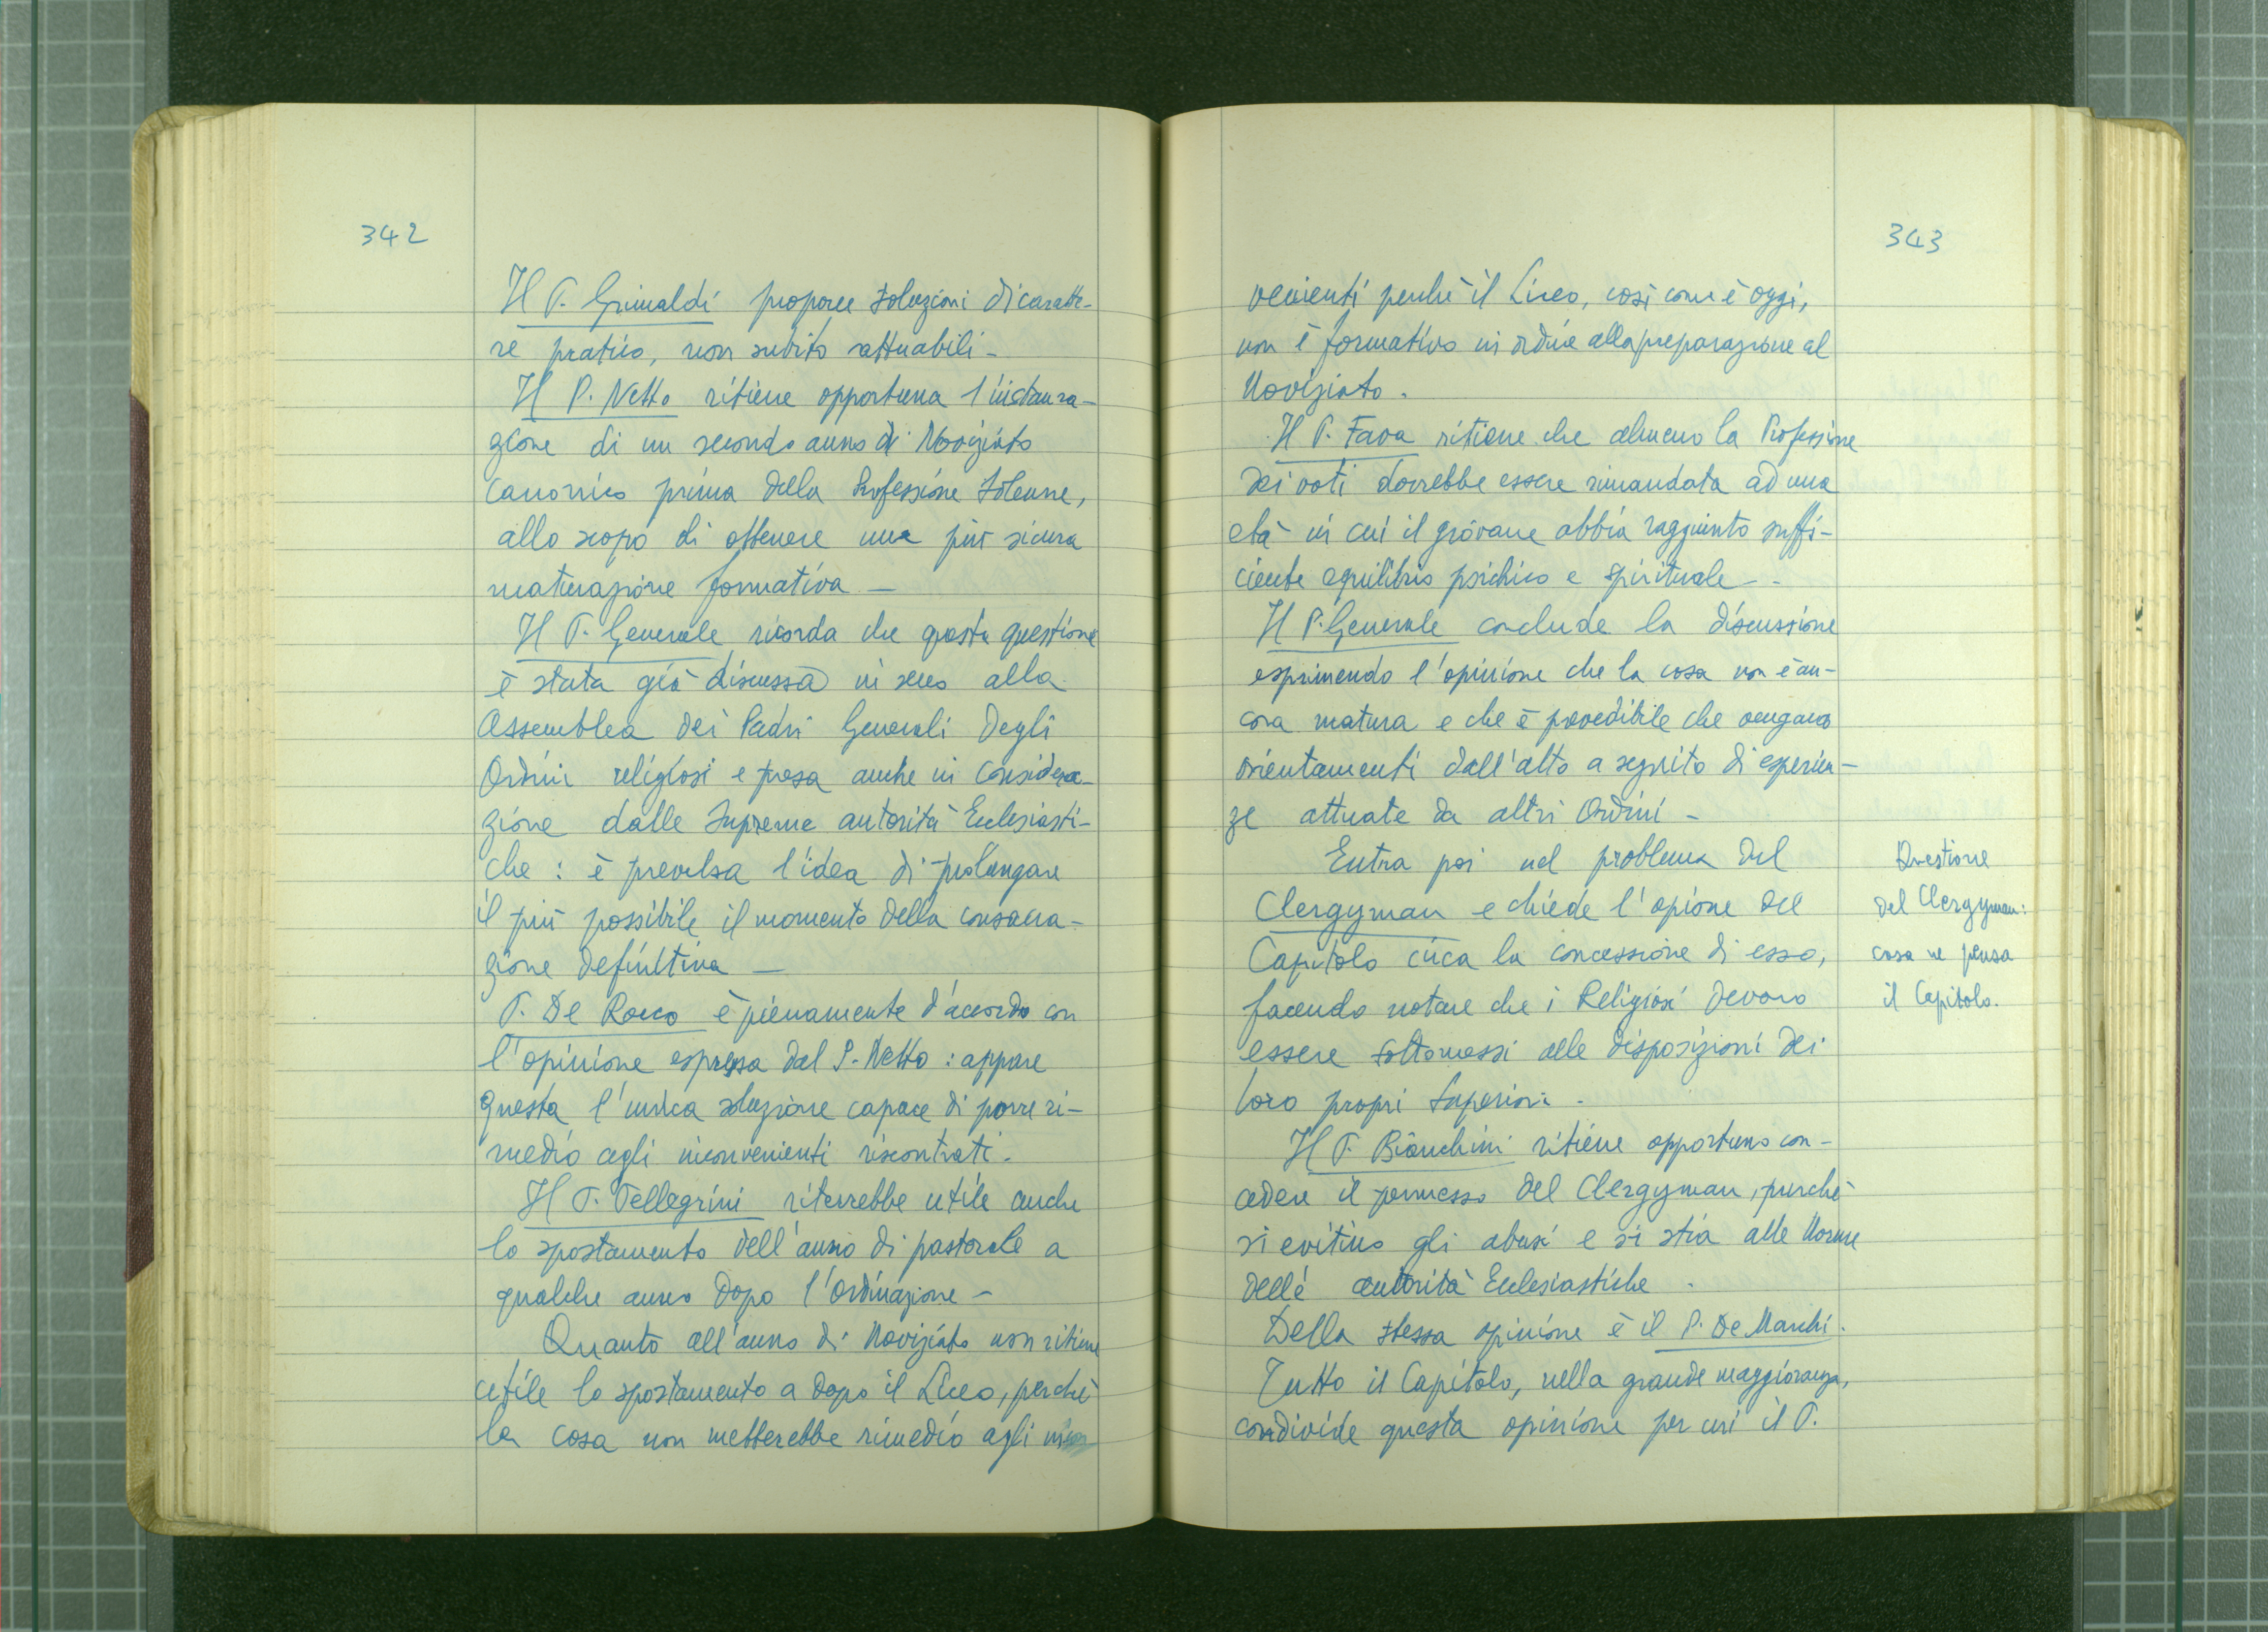 342
Il P. Grimaldi propone soluzioni di caratte-
re pratico, non subito attuabili -
Il P. Netto ritiene opportuna l'instaura-
zione di un secondo anno di Noviziato
Canonico prima della Professione Solenne,
allo scopo di ottenere una più sicura
maturazione formativa -
Il P. Generale ricorda che questa questione
è stata già discussa in seno alla
Assemblea dei Padri Generali degli
Ordini religiosi e presa anche in considera-
zione dalle Supreme autorità Ecclesiasti-
che : è prevalsa l'idea di prolungare
il più possibile il momento della consacra-
zione definitiva -
P. De Rocco è pienamente d'accordo con
l'opinione espressa dal P. Netto : appare
questa l'unica soluzione capace di porre ri-
medio agli inconvenienti riscontrati.
Il P. Pellegrini riterrebbe utile anche
lo spostamento dell'anno di pastorale a
qualche anno dopo l'Ordinazione -
Quanto all'anno di Noviziato non ritiene
utile lo spostamento a dopo il Liceo, perchè
la cosa non metterebbe rimedio agli incon
343
venienti perchè il Liceo, così come è oggi,
non è formativo in ordine alla preparazione al
Noviziato.
Il P. Fava ritiene che almeno la Professione
dei voti dovrebbe essere rimandata ad una
età in cui il giovane abbia raggiunto suffi-
ciente equilibrio psichico e spirituale -
Il P. Generale conclude la discussione
esprimendo l'opinione che la cosa non è an-
cora matura e che è prevedibile che vengano
orientamenti dall'alto a seguito di esperien-
ze attuate da altri Ordini -
Entra poi nel problema del
Clergyman e chiede l'opione del
Capitolo circa la concessione di esso,
facendo notare che i Religiosi devono
essere sottomessi alle disposizioni dei
loro propri Superiori.
Il P. Bianchini ritiene opportuno con-
cedere il permesso del Clergyman, purchè
si evitino gli abusi e si stia alle Norme
delle autorità Ecclesiastiche.
Della stessa opinione è il P. De Marchi.
Tutto il Capitolo, nella grande maggioranza,
condivide questa opinione per cui il P.
Questione
del Clergyman:
cosa ne pensa
il Capitolo.